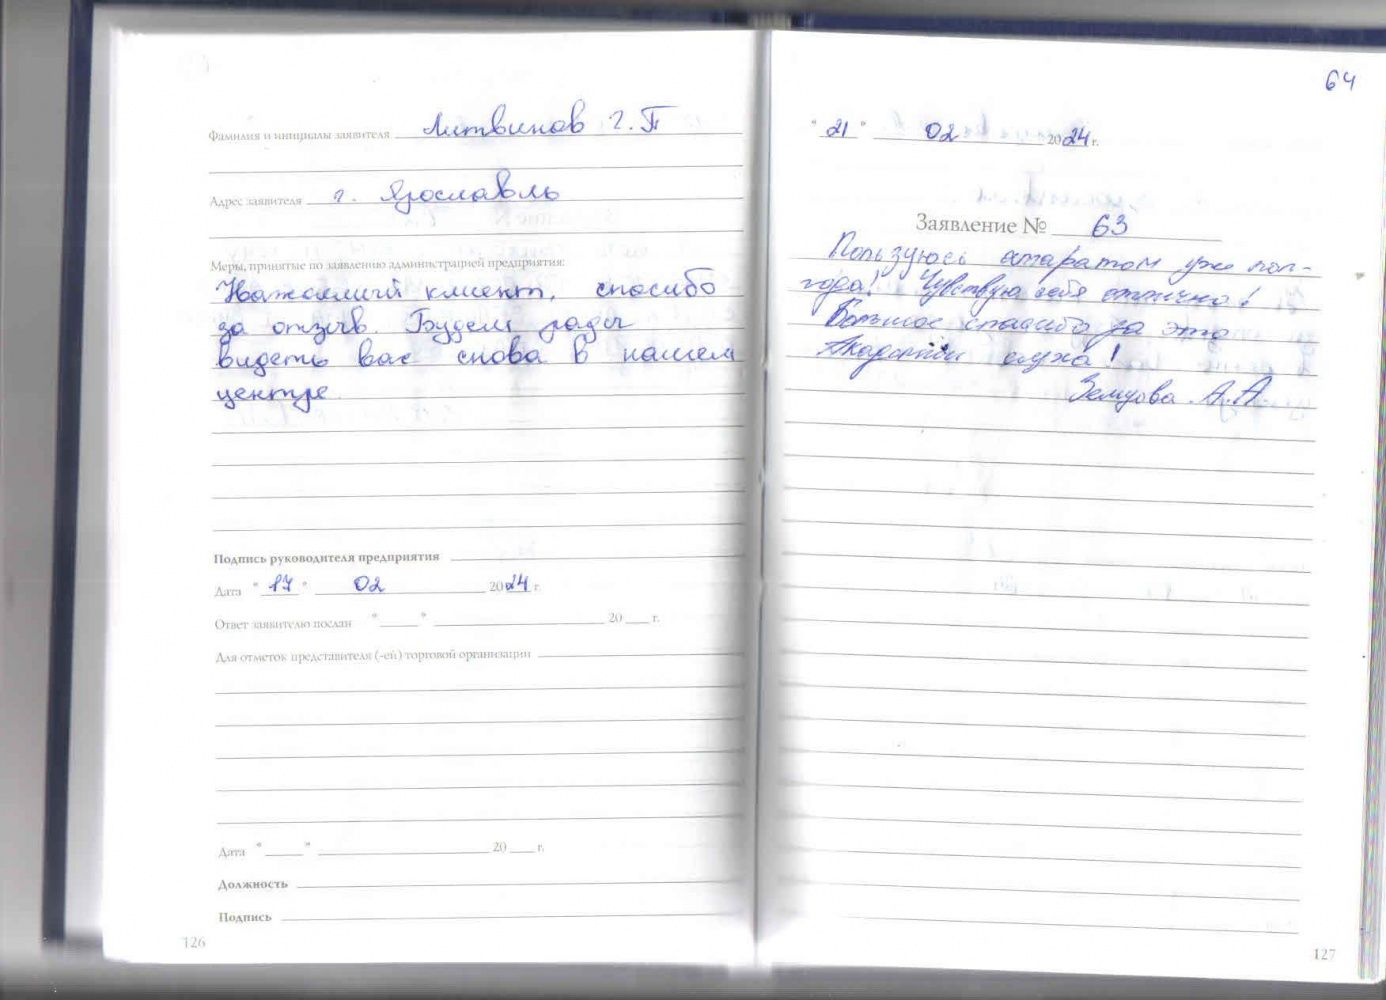 Фамилия и инициалы заявителя Литвинов Г.П
Адрес заявителя г. Ярославль
Меры, принятые по заявлению администрацией предприятия:
Уважаемый клиент, спасибо
за отзыв. Будем рады
видеть вас снова в нашем
центре.
Подпись руководителя предприятия
Дата "17" 02 2024 г.
Ответ заявителю послан " " 20 г.
Для отметок представителя (-ей) торговой организации
Дата " " 20 г.
Должность
Подпись
126
64
"21" 02 2024 г.
Заявление № 63
Пользуюсь аппаратом уже пол-
года! Чувствую себя отлично!
Большое спасибо за это
Академии слуха!
А.А.
127